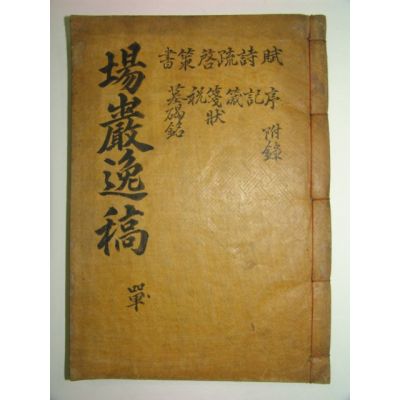 賦詩疏啓策書
序記箴箋狀
墓碣銘
附錄
場巖逸稿
單